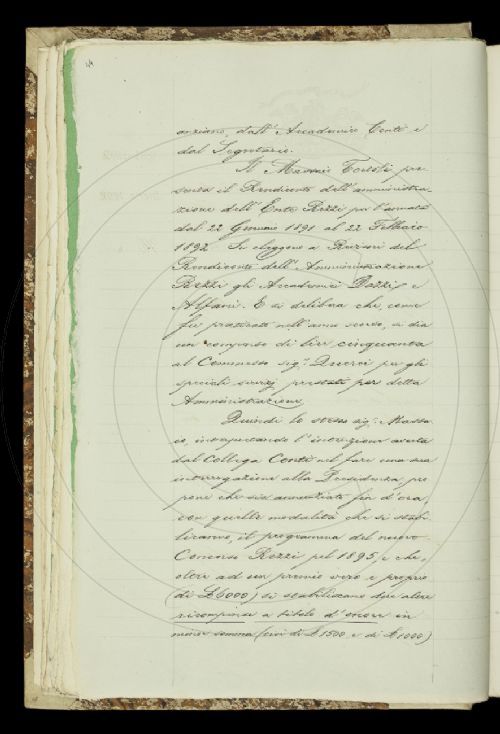 anziano, dall' Accademico Conti e
dal Segretario.
Il Massaio Tortoli pre-
senta il Rendiconto dell' amministra-
zione dell' Ente Rezzi per l'annata
dal 22 Gennaio 1891 al 22 Febbraio
1892. Si eleggono a Revisori del
Rendiconto dell' Amministrazione
Rezzi gli Accademici Dazzi e
Alfani. E si delibera che, come
fu praticato nell' anno scorso, si dia
un compenso di lire cinquanta
al Commesso sig.r Querci per gli
speciali servizj prestati per detta
Amministrazione.
Quindi lo stesso sig.r Massa-
io, interpretando l'intenzione avuta
dal Collega Conti nel fare una sua
interrogazione alla Presidenza, pro-
pone che sia annunziato fin d'ora,
con quelle modalità che si stabi-
liranno, il programma del nuovo
Concorso Rezzi pel 1895, e che,
oltre ad un premio vero e proprio
(di £ 5000) si stabiliscano due altre
ricompense a titolo d'onore in
minor somma (cioè di £ 1500 e di £ 1000)